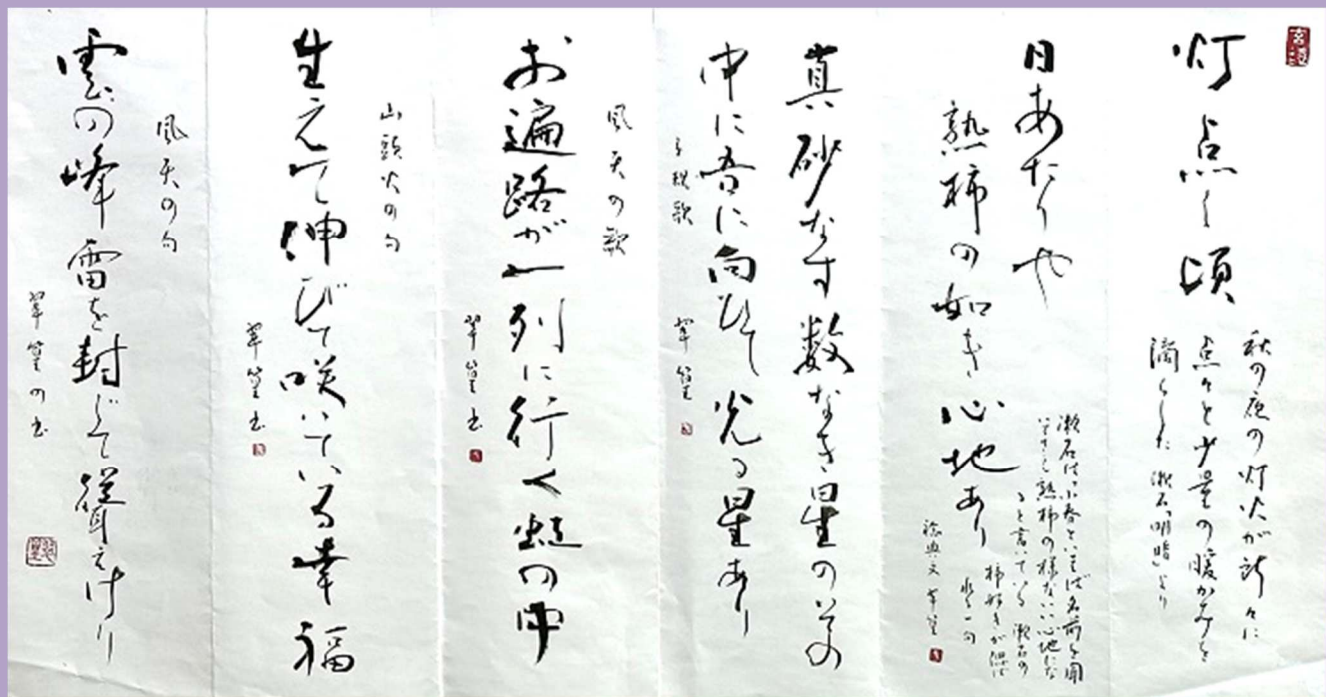 灯点し頃
秋の夜の灯火が所々に
点々と少量の暖かみを
滴らした 漱石「明暗」より
日あたりや
熟柿の如き心地あり
漱石は、小春といえば名前を聞
熟柿の様ないい心地にな
と言っている 漱石の
柿好きが偲ば
真砂なす数なき星の其の
中に吾に向ひて光る星あり
子規歌
翠篁
風天の歌
お遍路が一列に行く虹の中
翠篁書
山頭火の句
生えて伸びて咲いている幸福
翠篁書
風天の句
雲の峰 雷を封じて聳えけり
翠篁の書